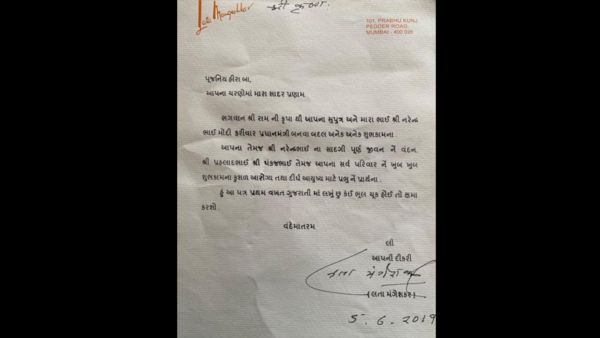 Lata Mangeshkar
શ્રી કૃષ્ણ
101, PRABHU KUNJ,
PEDDER ROAD,
MUMBAI - 400 026
પૂજનિય હીરા બા,
આપના ચરણોમાં મારા સાદર પ્રણામ.
ભગવાન શ્રી રામ ની કૃપા થી આપના સુપુત્ર અને મારા ભાઈ શ્રી નરેન્દ્ર
ભાઈ મોદી ફરીવાર પ્રધાનમંત્રી બનવા બદલ અનેક અનેક શુભકામના.
આપના તેમજ શ્રી નરેન્દ્રભાઈ ના સાદગી પૂર્ણ જીવન ને વંદન.
શ્રી પ્રહલાદભાઈ શ્રી પંકજભાઈ તેમજ આપના સર્વ પરિવાર ને ખુબ ખુબ
શુભકામના કુશળ આરોગ્ય તથા દીર્ઘ આયુષ્ય માટે પ્રભુ ને પ્રાર્થના.
હું આ પત્ર પ્રથમ વખત ગુજરાતી માં લખું છુ કંઈ ભૂલ ચૂક હોઈ તો ક્ષમા
કરશો.
વંદેમાતરમ
લી
આપની દીકરી
लता मंगेशकर
(લતા મંગેશકર)
5. 6. 2019